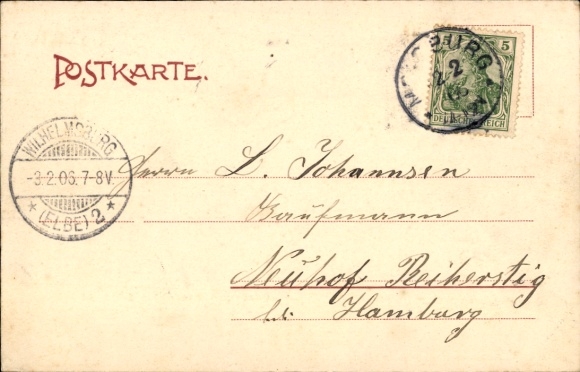 POSTKARTE.
BURG
2 2
5
DEUTSCHES REICH
WILHELMSBURG
-3.2.06.7-8V.
* (ELBE) 2 *
Herrn L. Johannsen
Kaufmann
Neuhof Reiherstig
b. Hamburg